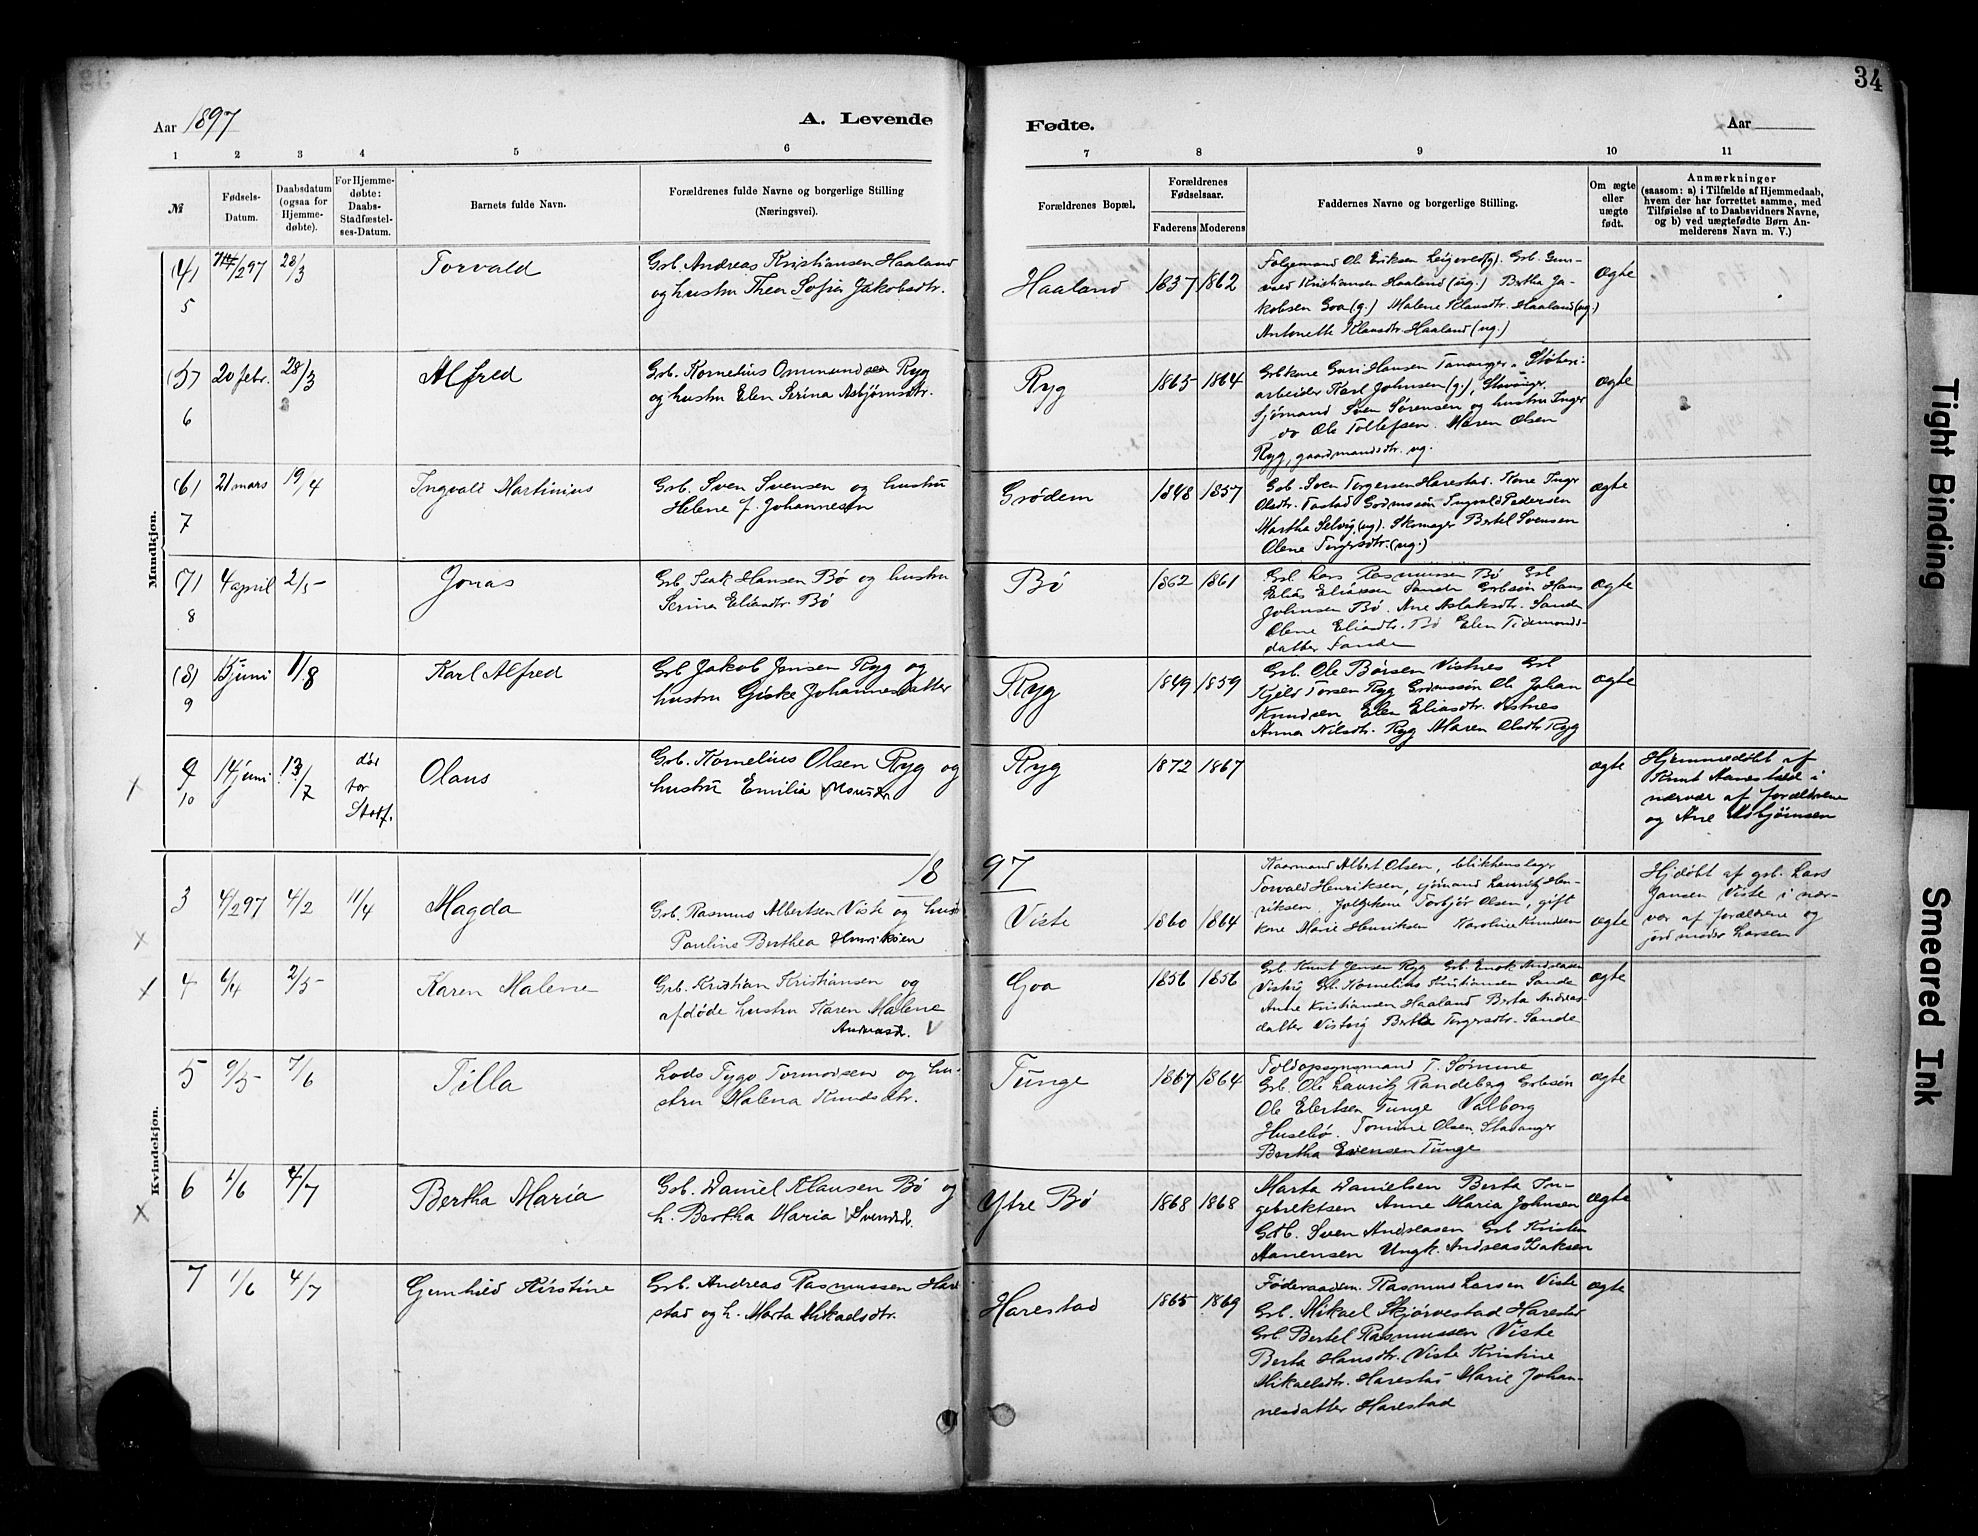 34
Aar 1897
A. Levende
Fødte.
Aar
1 2 3 4 5 6 7 8 9 10 11
№
Fødsels-
Datum.
Daabsdatum
(ogsaa for
Hjemme-
døbte).
For Hjemme-
døbte:
Daabs-
Stadfæstel-
ses-Datum.
Barnets fulde Navn.
Forældrenes fulde Navne og borgerlige Stilling
(Næringsvei).
Forældrenes Bopæl.
Forældrenes
Fødselsaar.
Faderens Moderens
Faddernes Navne og borgerlige Stilling.
Om ægte
eller
uægte
født.
Anmærkninger
(saasom: a) i Tilfælde af Hjemmedaab,
hvem der har forrettet samme, med
Tilføielse af to Daabsvidners Navne,
og b) ved uægtefødte Børn An-
melderens Navn m. V.)
Mandkjøn.
(4)
5
/2 97
28/3
Torvald
Grb. Andreas Kristiansen Haaland
og hustru Thea Sofia Jakobsdtr.
Haaland
1837 1862
Følgemand Ole Eriksen Grb. Gun-
vald Kristiansen Haaland (ug.) Bertha Ja-
kobsen Goa (g.) Malene Klausdtr. Haaland (ug.)
Antonette Klausdtr. Haaland (ug.)
ægte
(5)
6
20 febr.
28/3
Alfred
Grb. Kornelius Ommundsen Ryg
og hustru Elen Serina Asbjørnsdtr.
Ryg
1865 1864
Grbkone Guri Hansen Tananger, Støberi-
arbeider Karl Johnsen (g.), Stavanger
Sjømand Sven Sørensen og hustru Inger
do Ole Tollefsen. Maren Olsen
Ryg, gaardmandsdtr. ug.
ægte
(6)
7
21 mars
19/4
Ingvald Martinius
Grb. Sven Svensen og hustru
Helene f. Johannesen
Grødem
1848 1857
Grb. Sven Torgersen Harestad. Kone Inger
Olsdtr. Tastad Ingvald Pedersen
Martha Selvig (ug). Skomager Bertel Svensen
Olene Torgersdtr. (ug.)
ægte
(7)
8
4 april
2/5
Jonas
Grb. Isak Hansen Bø og hustru
Serina Eliasdtr. Bø
Bø
1862 1861
Grb Lars Rasmussen Bø Grb
Elias Eliassen Sande Grbsøn Hans
Johnsen Bø. Ane Aslaksdtr. Sande
Olene Eliasdtr. Bø Elen Tidemands-
datter Sande
ægte
(8)
9
juni
1/8
Karl Alfred
Grb Jakob Jensen Ryg og
hustru Giske Johannesdatter
Ryg
1849 1859
Grb. Ole Børsen Vistnes Grb
Kjeld Torsen Ryg Ole Johan
Knudsen Elen Eliasdtr. Vistnes
Anna Nilsdtr. Ryg Maren Olsdtr Ryg
ægte
x
9
10
14 juni
13/7
død
før
Stadf.
Olaus
Grb. Kornelius Olsen Ryg og
hustru Emilia
Ryg
1872 1867
ægte
Hjemmedøbt af
Knut Hanestad i
nærvær af forældrene
og Ane Asbjørnsen
1897
Kvindekjøn.
x
3
4/2 97
4/2
11/4
Magda
Grb. Rasmus Albertsen Viste og hust
Pauline Berthea Henriksen
Viste
1860 1864
Kaarmand Albert Olsen, blikkenslager
Torvald Henriksen, sjømand Lauritz Hen-
riksen, Torbjør Olsen, gift
kone Marie Henriksen Karoline Knudsen
ægte
Hjdøbt af grb. Lars
Jansen Viste i nær-
vær af forældrene og
jordmoder Larsen
x
4
6/4
2/5
Karen Malene
Grb. Kristian Kristiansen og
afdøde hustru Karen Malene
Andreasdr. V
Goa
1856 1856
Grb. Knut Jensen Ryg Grb. Enok Andreasen
Vistvig Grb. Kornelius Kristiansen Sande
Anne Kristiansen Haaland Berta Andreas-
datter Vistvig Berta Torgersdtr. Sande
ægte
5
9/5
7/6
Tilla
Lods Tygo Tormodsen og hu-
stru Malena Knudsdtr.
Tunge
1867 1864
Toldopsynsmand T. Sømme
Grb. Ole Lauritz Randeberg Grbsøn
Ole Elertsen Tunge Valborg
Husebø. Tomine Olsen, Stavanger
Bertha Evensen Tunge
ægte
x
6
1/6
4/7
Bertha Maria
Grb. Daniel Klausen Bø og
h. Bertha Maria Svendsdr.
Ytre Bø
1868 1868
Marta Danielsen Berta In-
gebrektsen Anne Maria Johnsen
Grb. Sven Andreasen Grb Kristen
Hanensen Ungk. Andreas Isaksen
ægte
7
1/6
4/7
Gunhild Kirstine
Grb. Andreas Rasmussen Hare
stad og h. Marta Mikaelsdtr.
Harestad
1865 1869
Føderaadsm. Rasmus Larsen Viste
Grb. Mikael Skjørvestad Harestad
Grb. Bertel Rasmussen Viste
Berta Hansdtr. Viste Kristine
Mikaelsdtr. Harestad Marie Johan-
nesdatter Harestad
ægte
Tight Binding
Smeared Ink